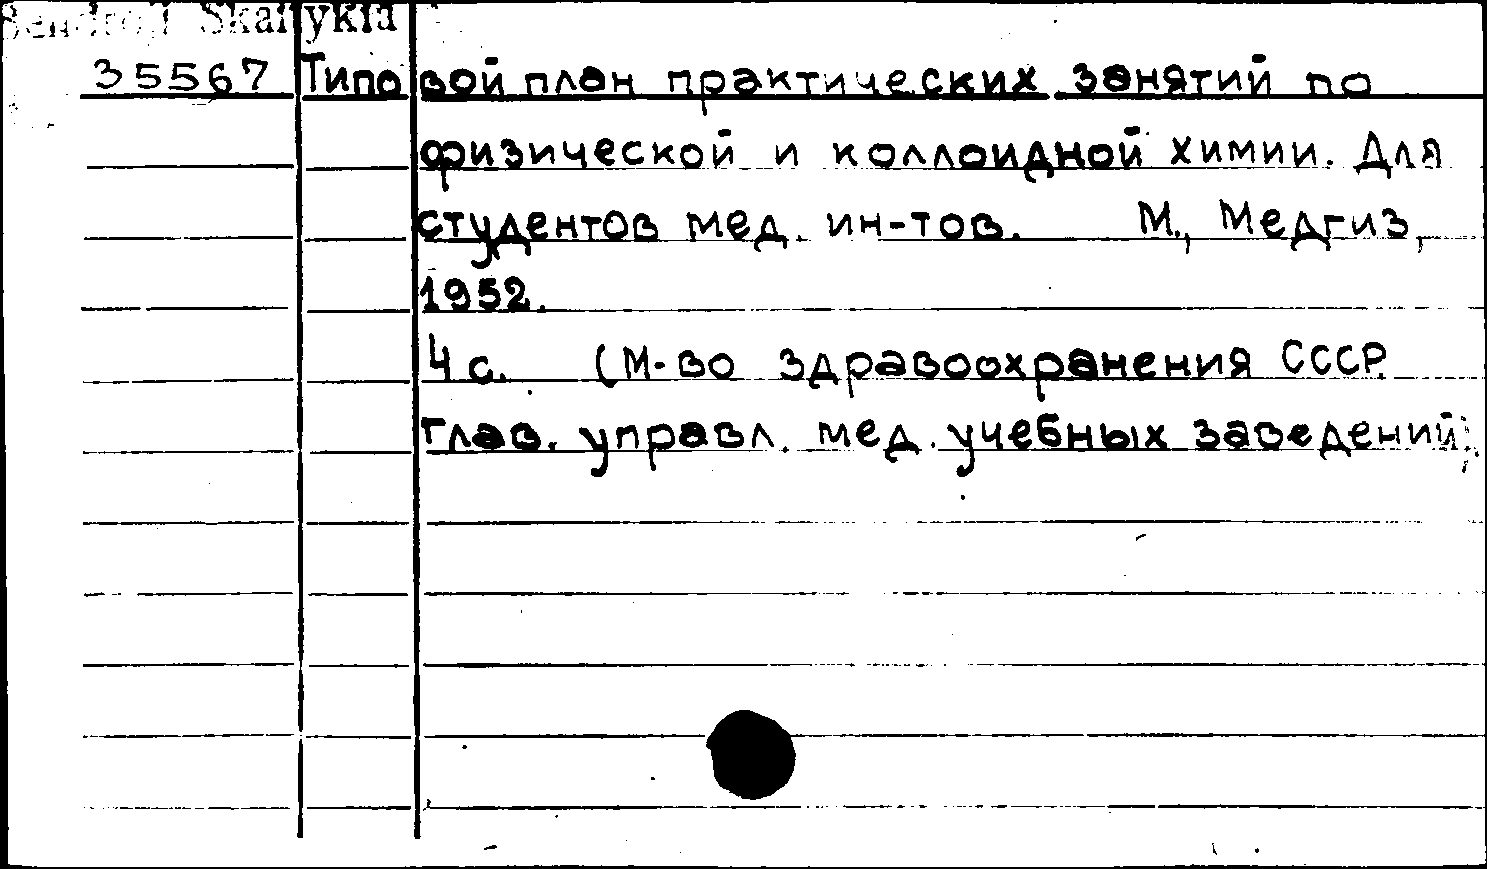 Bendroji Skaitykla
35567 Типовой план практических занятий по
физической и коллоидной химии. Для
студентов мед. ин-тов. М., Медгиз,
1952.
4 с. (М-во здравоохранения СССР.
Глав. управл. мед. учебных заведений).